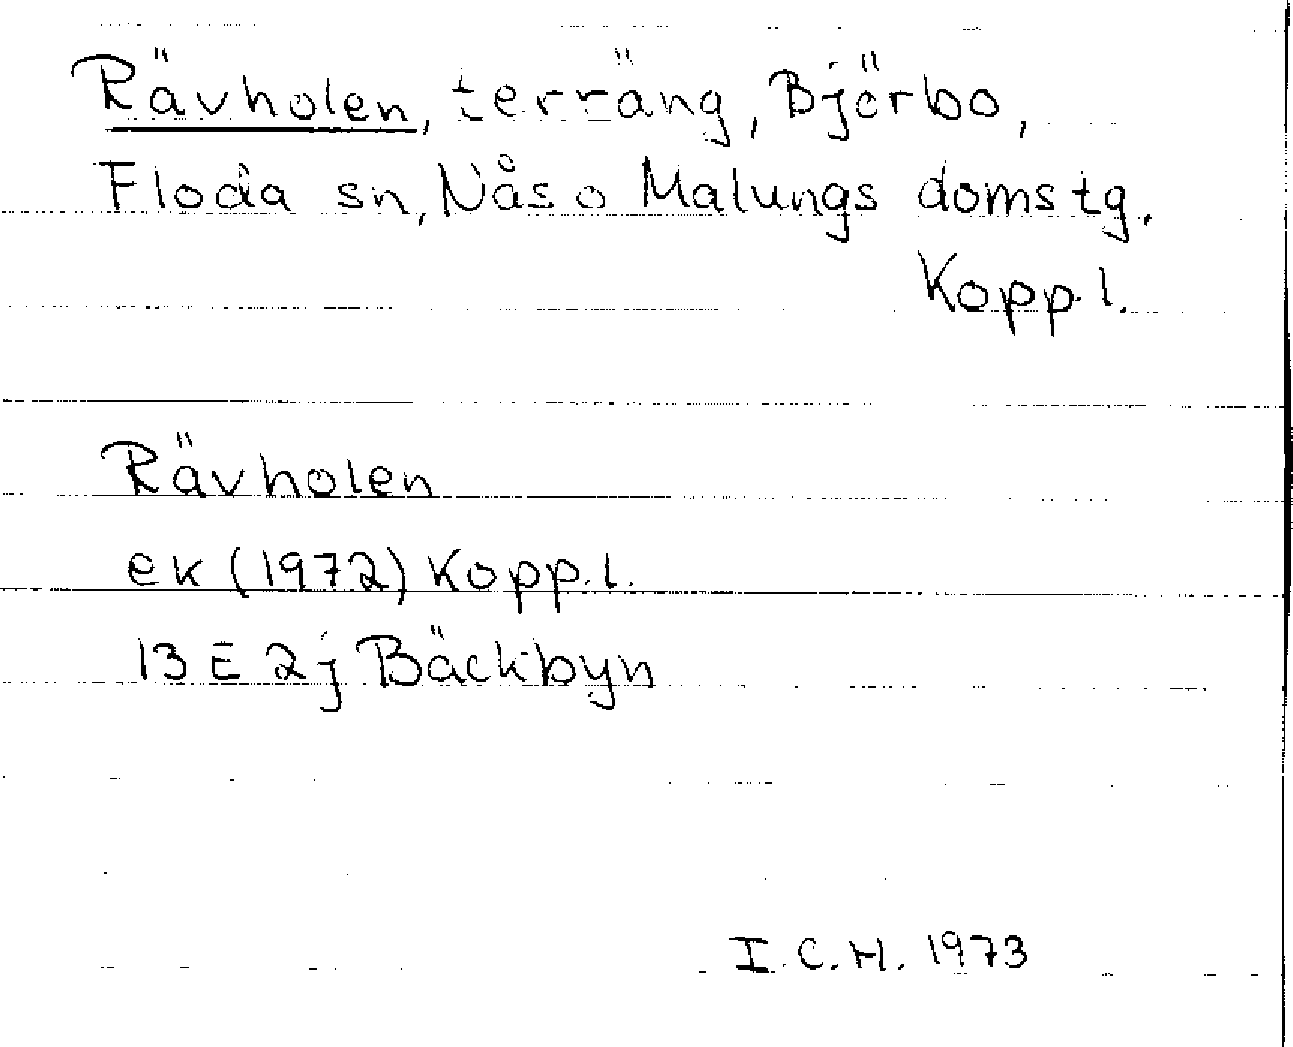 Rävholen, terräng, Björbo,
Floda sn, Nås o Malungs domstg.
Kopp.l.
Rävholen
ek (1972) Kopp.l.
13 E 2j Bäckbyn
I.C.H. 1973